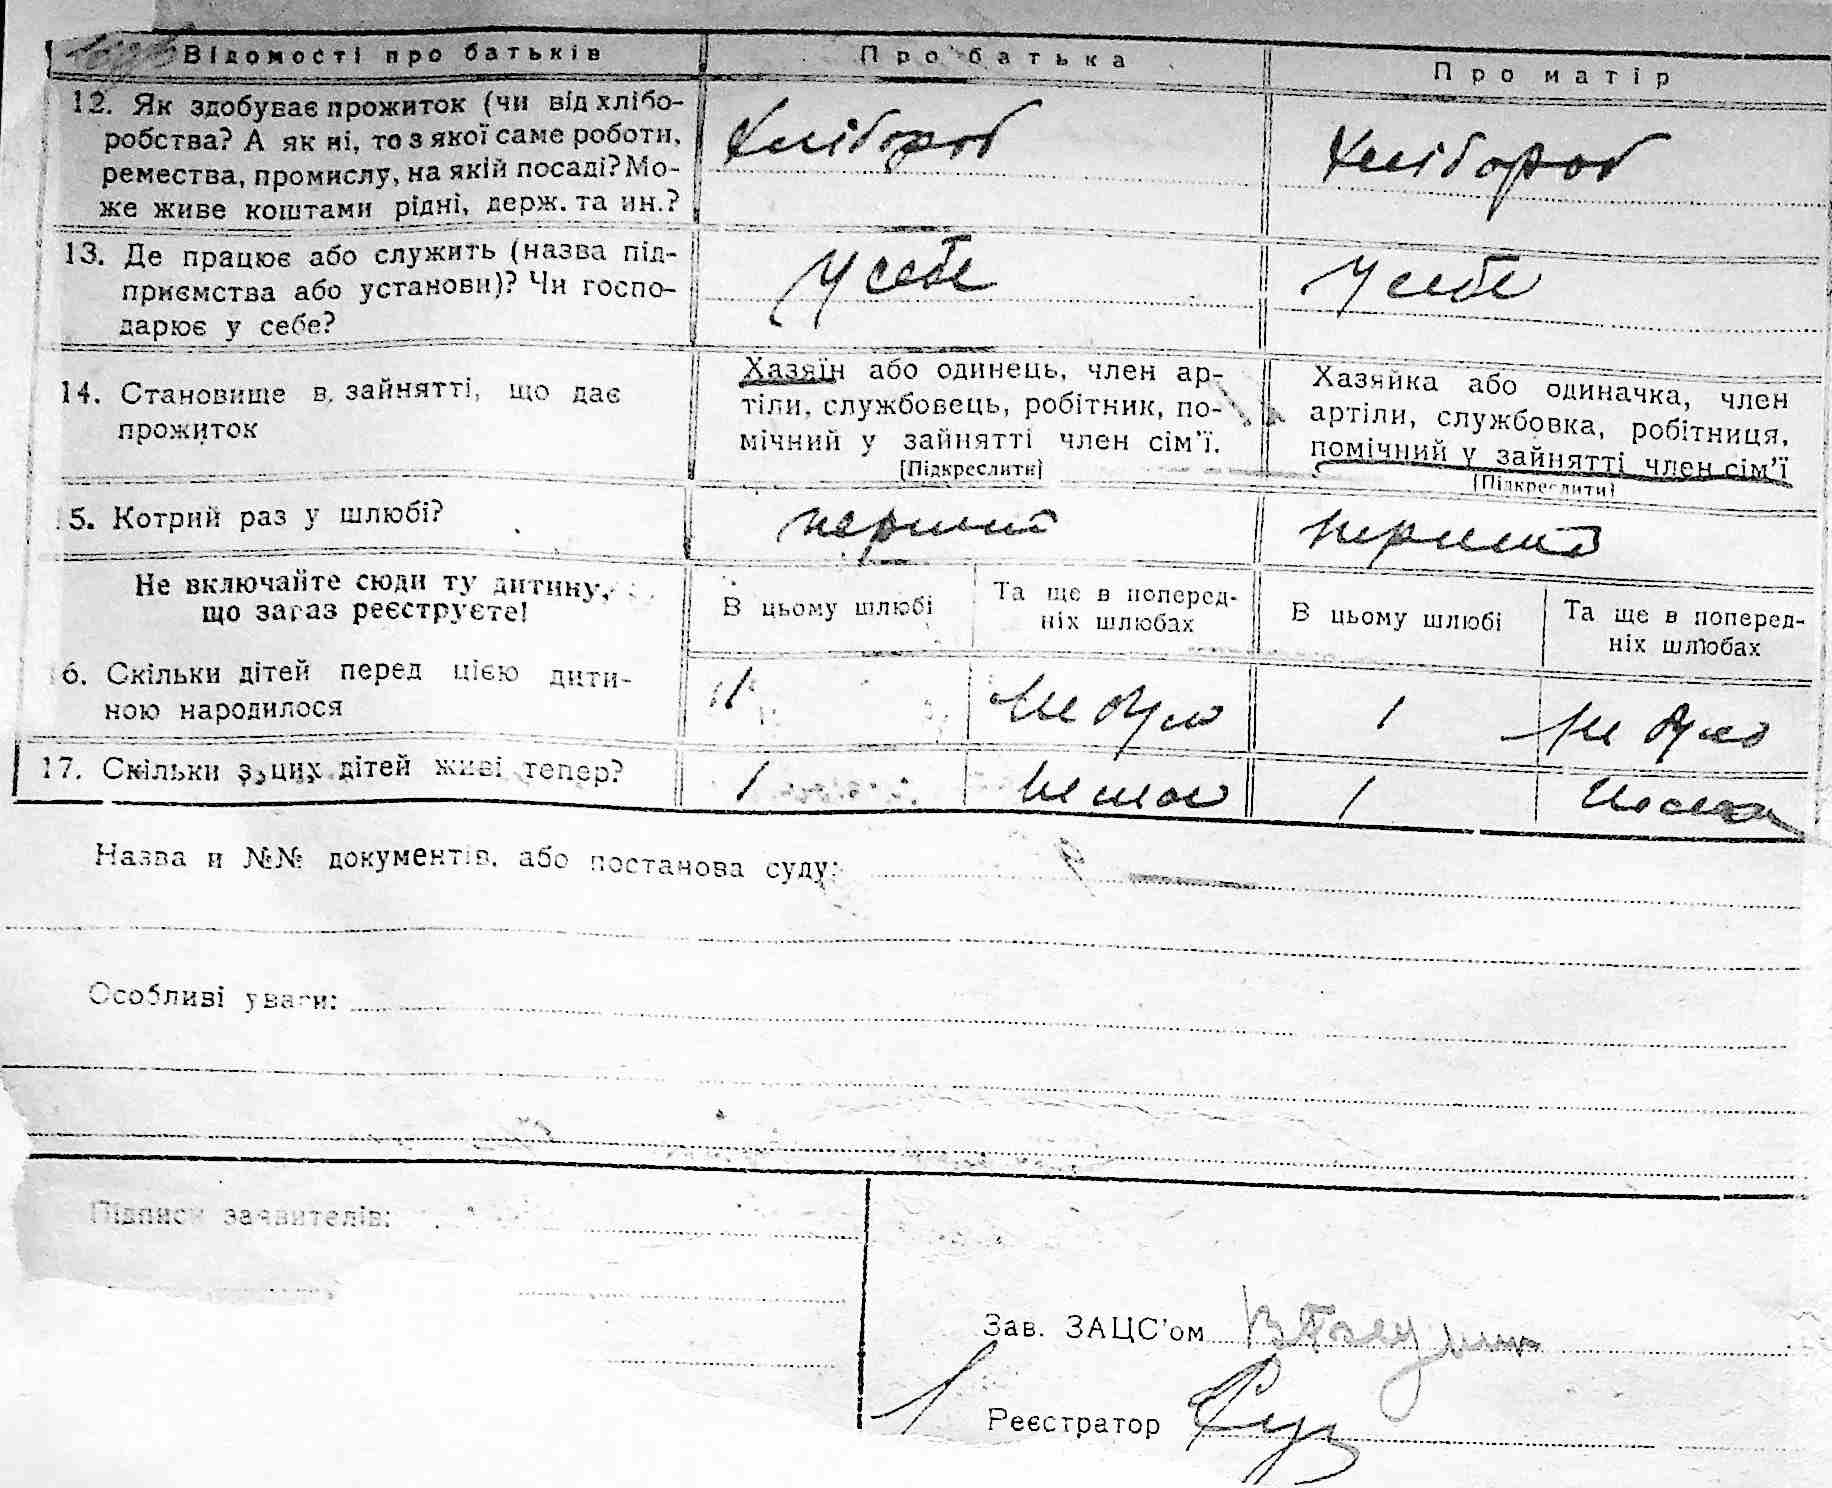 Відомості про батьків
Про батька
Про матір
12. Як здобуває прожиток (чи від хлібо-
робства? А як ні, то з якої саме роботи,
ремества, промислу, на якій посаді? Мо-
же живе коштами рідні, держ. та ин.?
Хлібороб
Хлібороб
13. Де працює або служить (назва під-
приємства або установи)? Чи госпо-
дарює у себе?
У себе
У себе
14. Становище в зайнятті, що дає
прожиток
Хазяїн або одинець, член ар-
тіли, службовець, робітник, по-
мічний у зайнятті член сім'ї.
(Підкреслити)
Хазяйка або одиначка, член
артіли, службовка, робітниця,
помічний у зайнятті член сім'ї
(Підкреслити)
5. Котрий раз у шлюбі?
перший
перший
Не включайте сюди ту дитину,
що зараз реєструєте!
В цьому шлюбі
Та ще в поперед-
ніх шлюбах
В цьому шлюбі
Та ще в поперед-
ніх шлюбах
6. Скільки дітей перед цією дити-
ною народилося
1
Не було
1
Не було
17. Скільки з цих дітей живі тепер?
1
Немає
1
Назва и №№ документів, або постанова суду:
Особливі уваги:
Підписи заявителів:
Зав. ЗАЦС'ом
Реєстратор